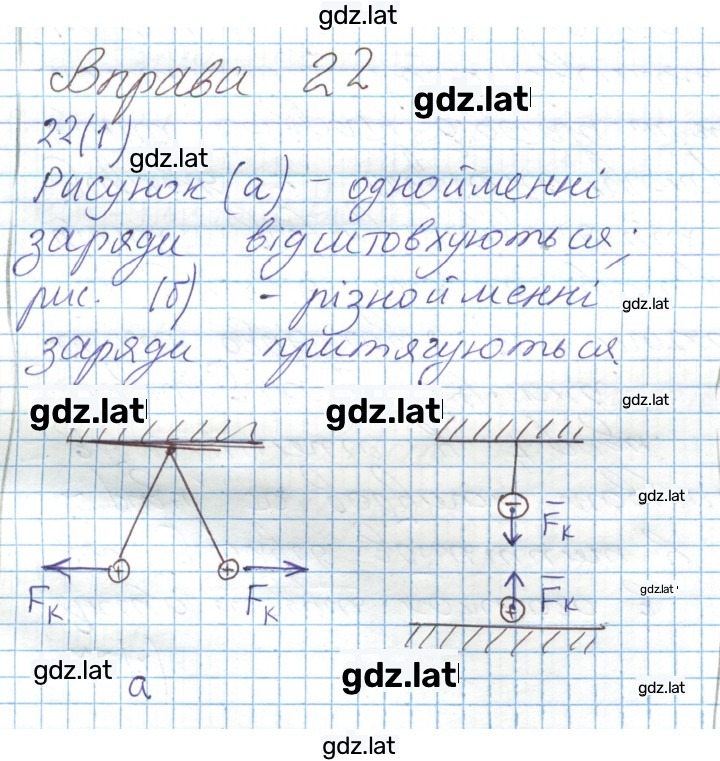 gdz.lat
Вправа 22
gdz.lat
22(1)
gdz.lat
Рисунок (а) - однойменні
заряди відштовхуються;
рис. (б) - різнойменні
gdz.lat
заряди притягуються
gdz.lat gdz.lat gdz.lat
gdz.lat
− F̅к
+ + F̅к
Fк Fк +
gdz.lat
gdz.lat gdz.lat gdz.lat
а
gdz.lat